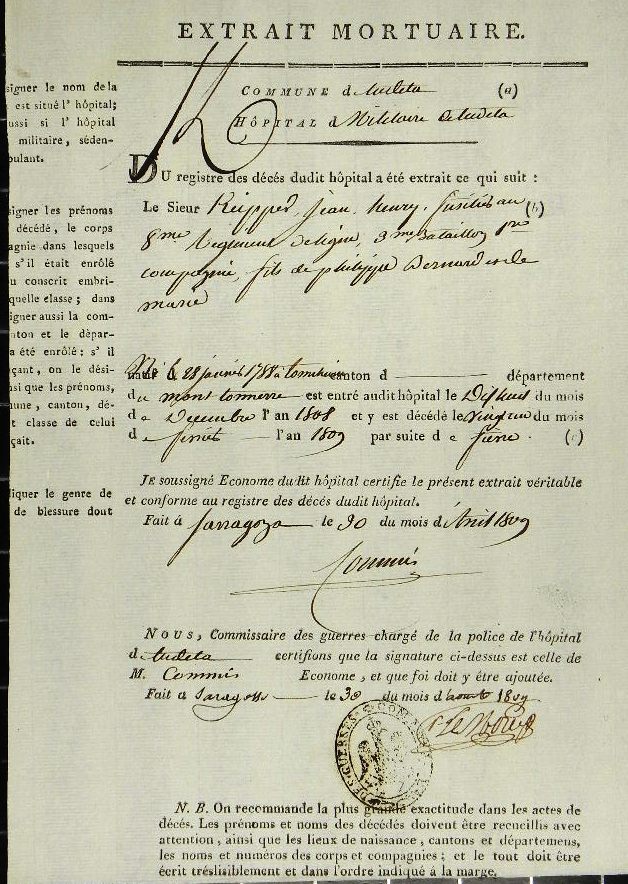 EXTRAIT MORTUAIRE.
COMMUNE d tudela (a)
HÔPITAL d Militaire de tudela
DU registre des décés dudit hôpital a été extrait ce qui suit :
Le Sieur Reipper, jean, henry, fusilier au (b)
8me Regiment de ligne, 3me Bataillon
compagnie, fils de philippe Bernard et de
marie
natif d 28 janvier 1788 à canton d département
du mont tonnerre est entré audit hôpital le Dix huit du mois
de Decembre l'an 1808 et y est décédé le du mois
de l'an 1809 par suite de fievre (c)
JE soussigné Econome dudit hôpital certifie le présent extrait véritable
et conforme au registre des décés dudit hôpital.
Fait à Sarragoza le 30 du mois d'Avril 1809
Commis
NOUS, Commissaire des guerres chargé de la police de l'hôpital
d tudela certifions que la signature ci-dessus est celle de
M. Commis Econome, et que foi doit y être ajoutée.
Fait à Saragosse le 30 du mois d'aout 1809
COMM DES GUERRES
N. B. On recommande la plus grande exactitude dans les actes de
décés. Les prénoms et noms des décédés doivent être recueillis avec
attention, ainsi que les lieux de naissance, cantons et départemens,
les noms et numéros des corps et compagnies; et le tout doit être
écrit trèslisiblement et dans l'ordre indiqué à la marge.
signer le nom de la
est situé l'hôpital;
ussi si l'hôpital
militaire, séden-
bulant.
signer les prénoms
décédé, le corps
agnie dans lesquels
s'il était enrôlé
u conscrit embri-
quelle elasse; dans
igner aussi la com-
nton et le dépar-
a été enrôlé: s'il
çant, on le dési-
nsi que les prénoms,
mune, canton, dé-
t classe de celui
çait.
liquer le genre de
de blessure dont